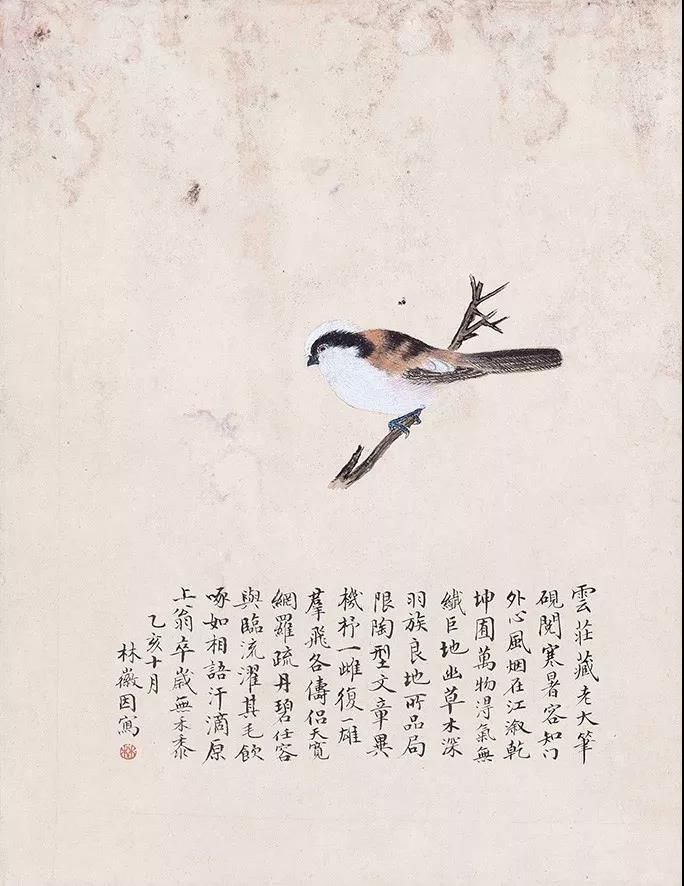 雲莊藏老大筆
硯閱寒暑容知門
外心風烟在江淑乾
坤囿萬物得氣無
纖巨地幽草木深
羽族良地所品局
限陶型文章異
機杼一雌復一雄
羣飛各儔侶天寬
網羅疏丹碧任容
與臨流濯其毛飲
啄如相語汗滴原
上翁卒歲無禾黍
乙亥十月
林徽因寫